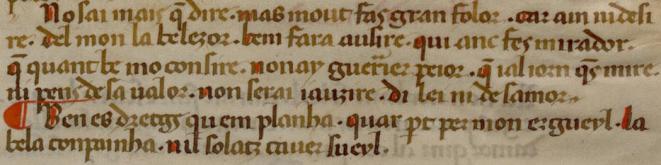 No sai mais q̃ dire. mas mout fas gran folor. car am ni desi
re. del mon la belezor. bem fara ausire. qui anc fes mirador.
q̃ quant be mo consire. non ay guerrier peior. q̃ ial iorn q̃s mire.
ni pens de sa ualor. non serai iauzire. di lei ni de samor.
¶ Ben es dretgs qu em planha. quar pt per mon ergueyl. la
bela conpainha. nil solatz cauer sueyl.